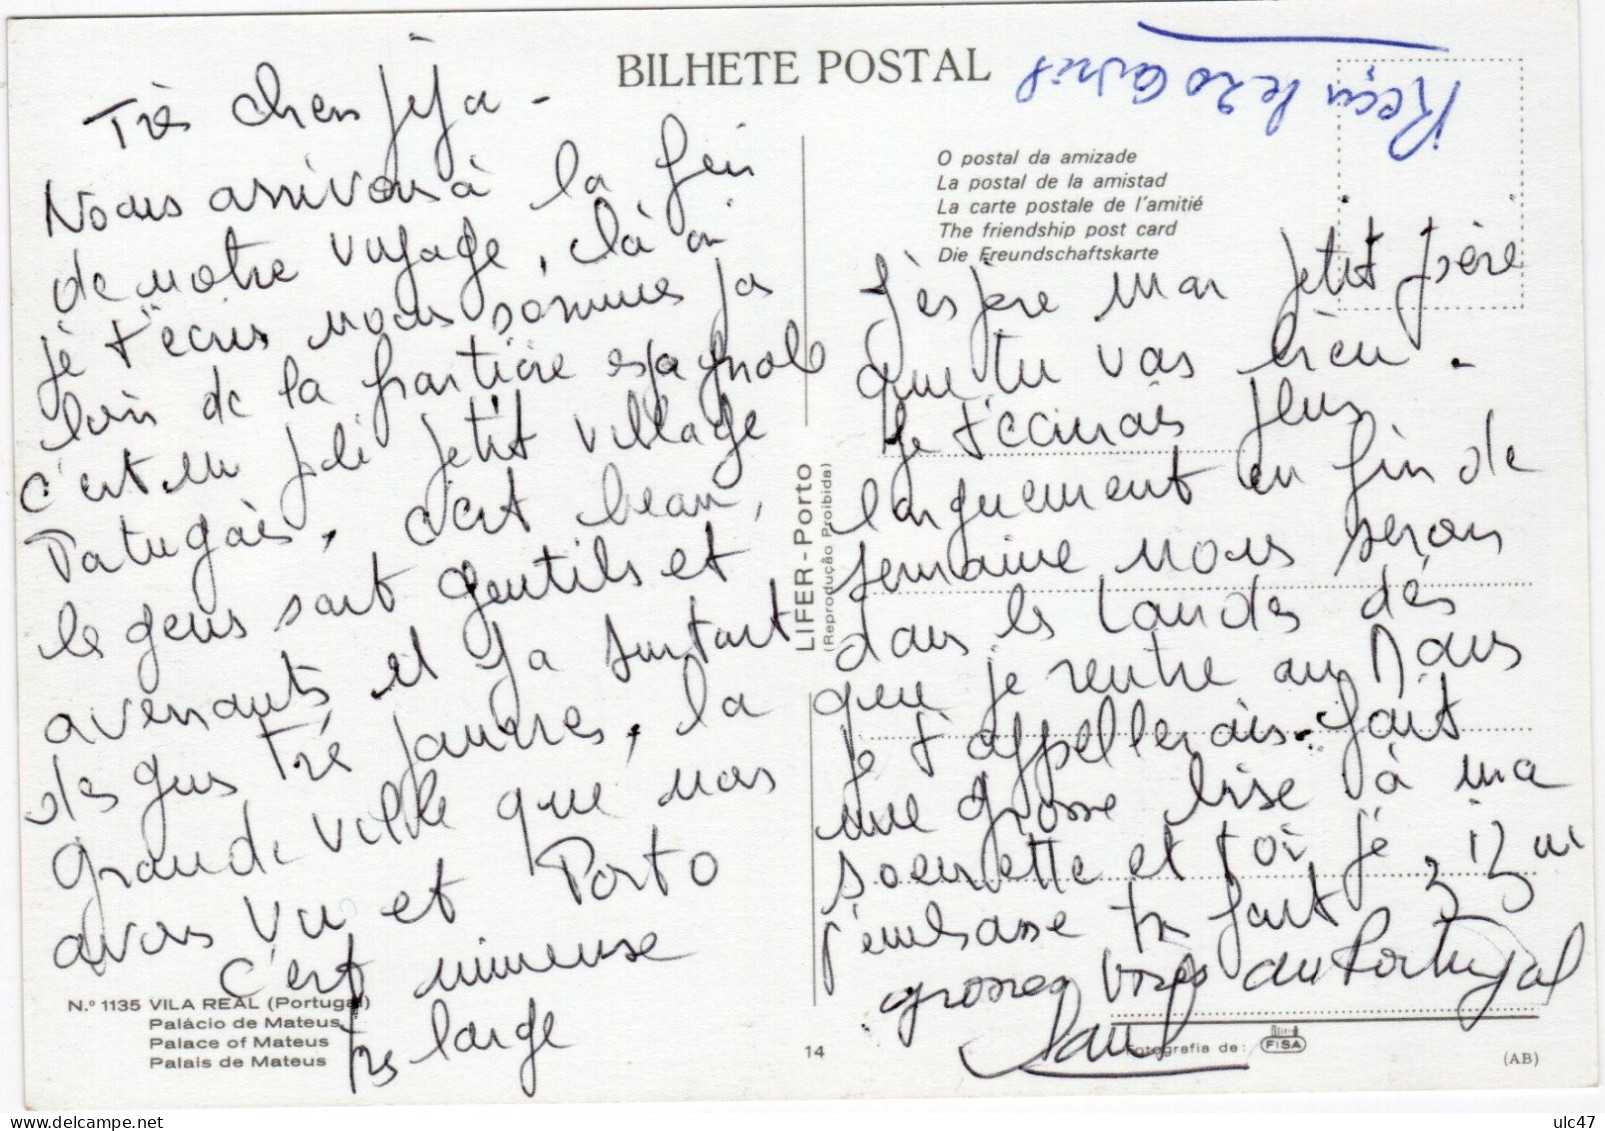 BILHETE POSTAL
Reçu le 20 Avril
Très cher
Nous arrivons à la fin
de notre voyage, là où
je t'écris nous sommes pas
loin de la frontière espagnole
c'est un joli petit village
Portugais, c'est beau,
le gens sont gentils et
avenants et ya surtout
des gens tré pauvres, la
grande ville que nous
avons vu et Porto
c'est
très large
N.º 1135 VILA REAL (Portugal)
Palácio de Mateus
Palace of Mateus
Palais de Mateus
O postal da amizade
La postal de la amistad
La carte postale de l'amitié
The friendship post card
Die Freundschaftskarte
LIFER - Porto
(Reprodução Proibida)
14
J'espère mon petit frère
que tu vas bien.
Je t'écrirais plus
longuement en fin de
semaine nous serons
dans les Landes dès
que je rentre au Mans
je t'appellerais. fait
une grosse bise à ma
soeurette et toi je
t'embrasse trs fort
grosses bises du Portugal
Paul
Fotografia de: FISA
(AB)
ulc47